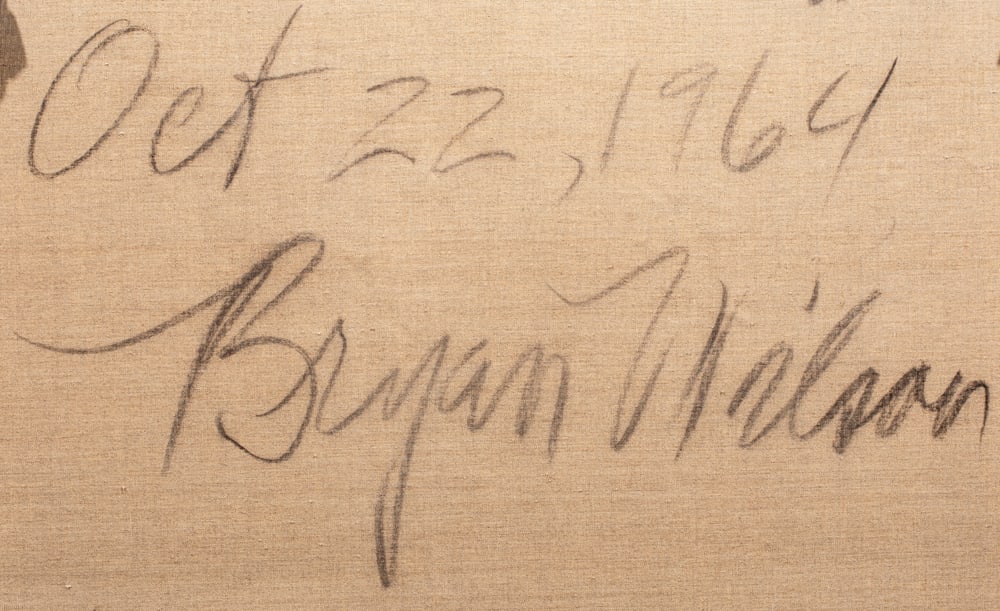 Oct 22, 1964
Bryan Wilson